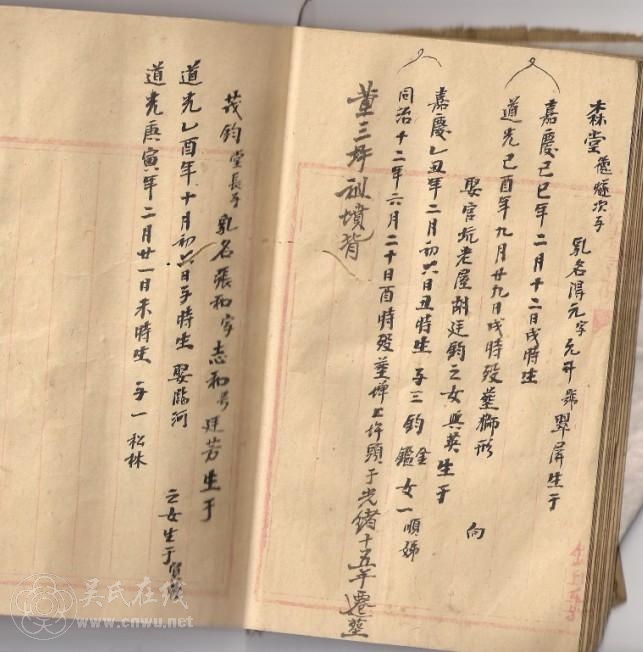 森堂 次子 乳名得元字元升號翠屏生于
嘉慶己巳年二月十二日戌時生
道光己酉年九月廿九日戌時歿葬獅形
娶官坑老屋 廷鈞之女與英生于 向
嘉慶乙丑年二月初六日丑時生 子三 鈞 金 鑑 女一 順娣
同治十二年六月二十日酉時歿葬 上 頭于光緒十五年遷葬
董三坪祖墳背
茂鈞堂長子 乳名張和字志和号廷芳生于
道光乙酉年十月初六日子時生 娶臨河 之女生于
道光庚寅年二月廿一日未時生 子一 松林
吴氏在线
www.cnwu.net